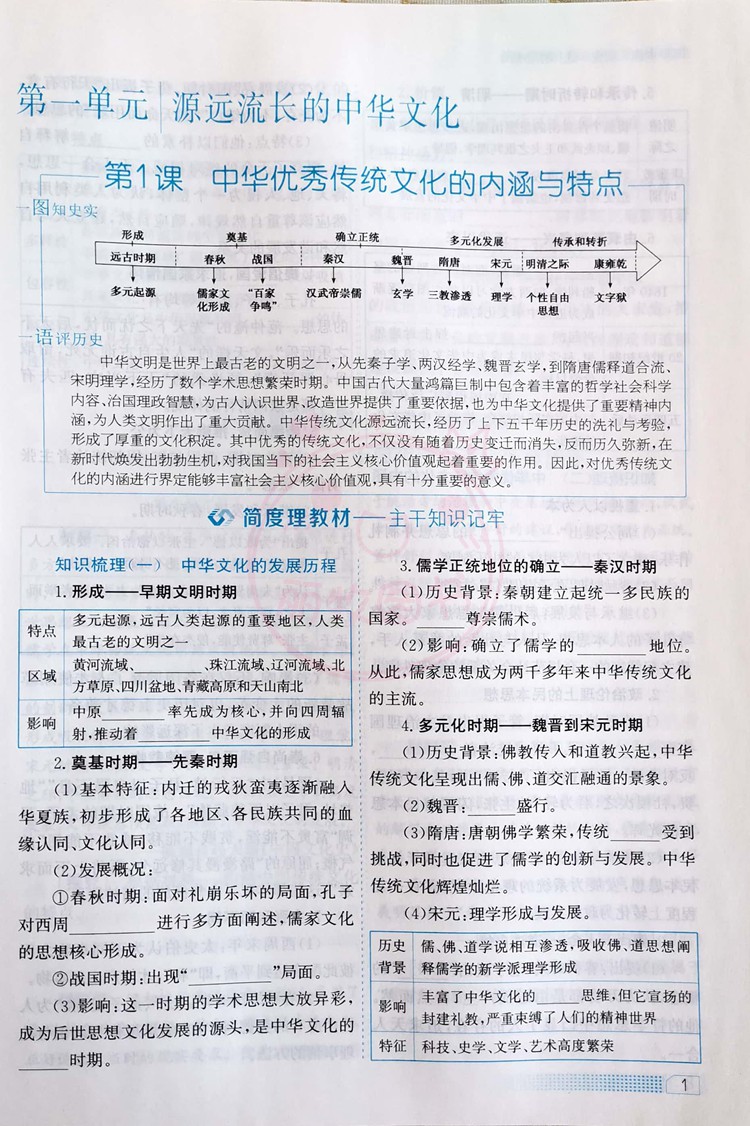 第一单元 源远流长的中华文化
第1课 中华优秀传统文化的内涵与特点
图知史实
形成 奠基 确立正统 多元化发展 传承和转折
远古时期 春秋 战国 秦汉 魏晋 隋唐 宋元 明清之际 康雍乾
多元起源 儒家文 “百家 汉武帝崇儒 玄学 三教渗透 理学 个性自由 文字狱
化形成 争鸣” 思想
语评历史
中华文明是世界上最古老的文明之一,从先秦子学、两汉经学、魏晋玄学,到隋唐儒释道合流、
宋明理学,经历了数个学术思想繁荣时期。中国古代大量鸿篇巨制中包含着丰富的哲学社会科学
内容、治国理政智慧,为古人认识世界、改造世界提供了重要依据,也为中华文化提供了重要精神内
涵,为人类文明作出了重大贡献。中华传统文化源远流长,经历了上下五千年历史的洗礼与考验,
形成了厚重的文化积淀。其中优秀的传统文化,不仅没有随着历史变迁而消失,反而历久弥新,在
新时代焕发出勃勃生机,对我国当下的社会主义核心价值观起着重要的作用。因此,对优秀传统文
化的内涵进行界定能够丰富社会主义核心价值观,具有十分重要的意义。
简度理教材——主干知识记牢
知识梳理(一) 中华文化的发展历程
1. 形成——早期文明时期
特点 多元起源,远古人类起源的重要地区,人类
最古老的文明之一
区域 黄河流域、________、珠江流域、辽河流域、北
方草原、四川盆地、青藏高原和天山南北
影响 中原________率先成为核心,并向四周辐
射,推动着________中华文化的形成
2. 奠基时期——先秦时期
(1)基本特征:内迁的戎狄蛮夷逐渐融入
华夏族,初步形成了各地区、各民族共同的血
缘认同、文化认同。
(2)发展概况:
①春秋时期:面对礼崩乐坏的局面,孔子
对西周________进行多方面阐述,儒家文化
的思想核心形成。
②战国时期:出现“________”局面。
(3)影响:这一时期的学术思想大放异彩,
成为后世思想文化发展的源头,是中华文化的
________时期。
3. 儒学正统地位的确立——秦汉时期
(1)历史背景:秦朝建立起统一多民族的
国家。________尊崇儒术。
(2)影响:确立了儒学的________地位。
从此,儒家思想成为两千多年来中华传统文化
的主流。
4. 多元化时期——魏晋到宋元时期
(1)历史背景:佛教传入和道教兴起,中华
传统文化呈现出儒、佛、道交汇融通的景象。
(2)魏晋:________盛行。
(3)隋唐:唐朝佛学繁荣,传统________受到
挑战,同时也促进了儒学的创新与发展。中华
传统文化辉煌灿烂。
(4)宋元:理学形成与发展。
历史 儒、佛、道学说相互渗透,吸收佛、道思想阐
背景 释儒学的新学派理学形成
影响 丰富了中华文化的________思维,但它宣扬的
封建礼教,严重束缚了人们的精神世界
特征 科技、史学、文学、艺术高度繁荣
1